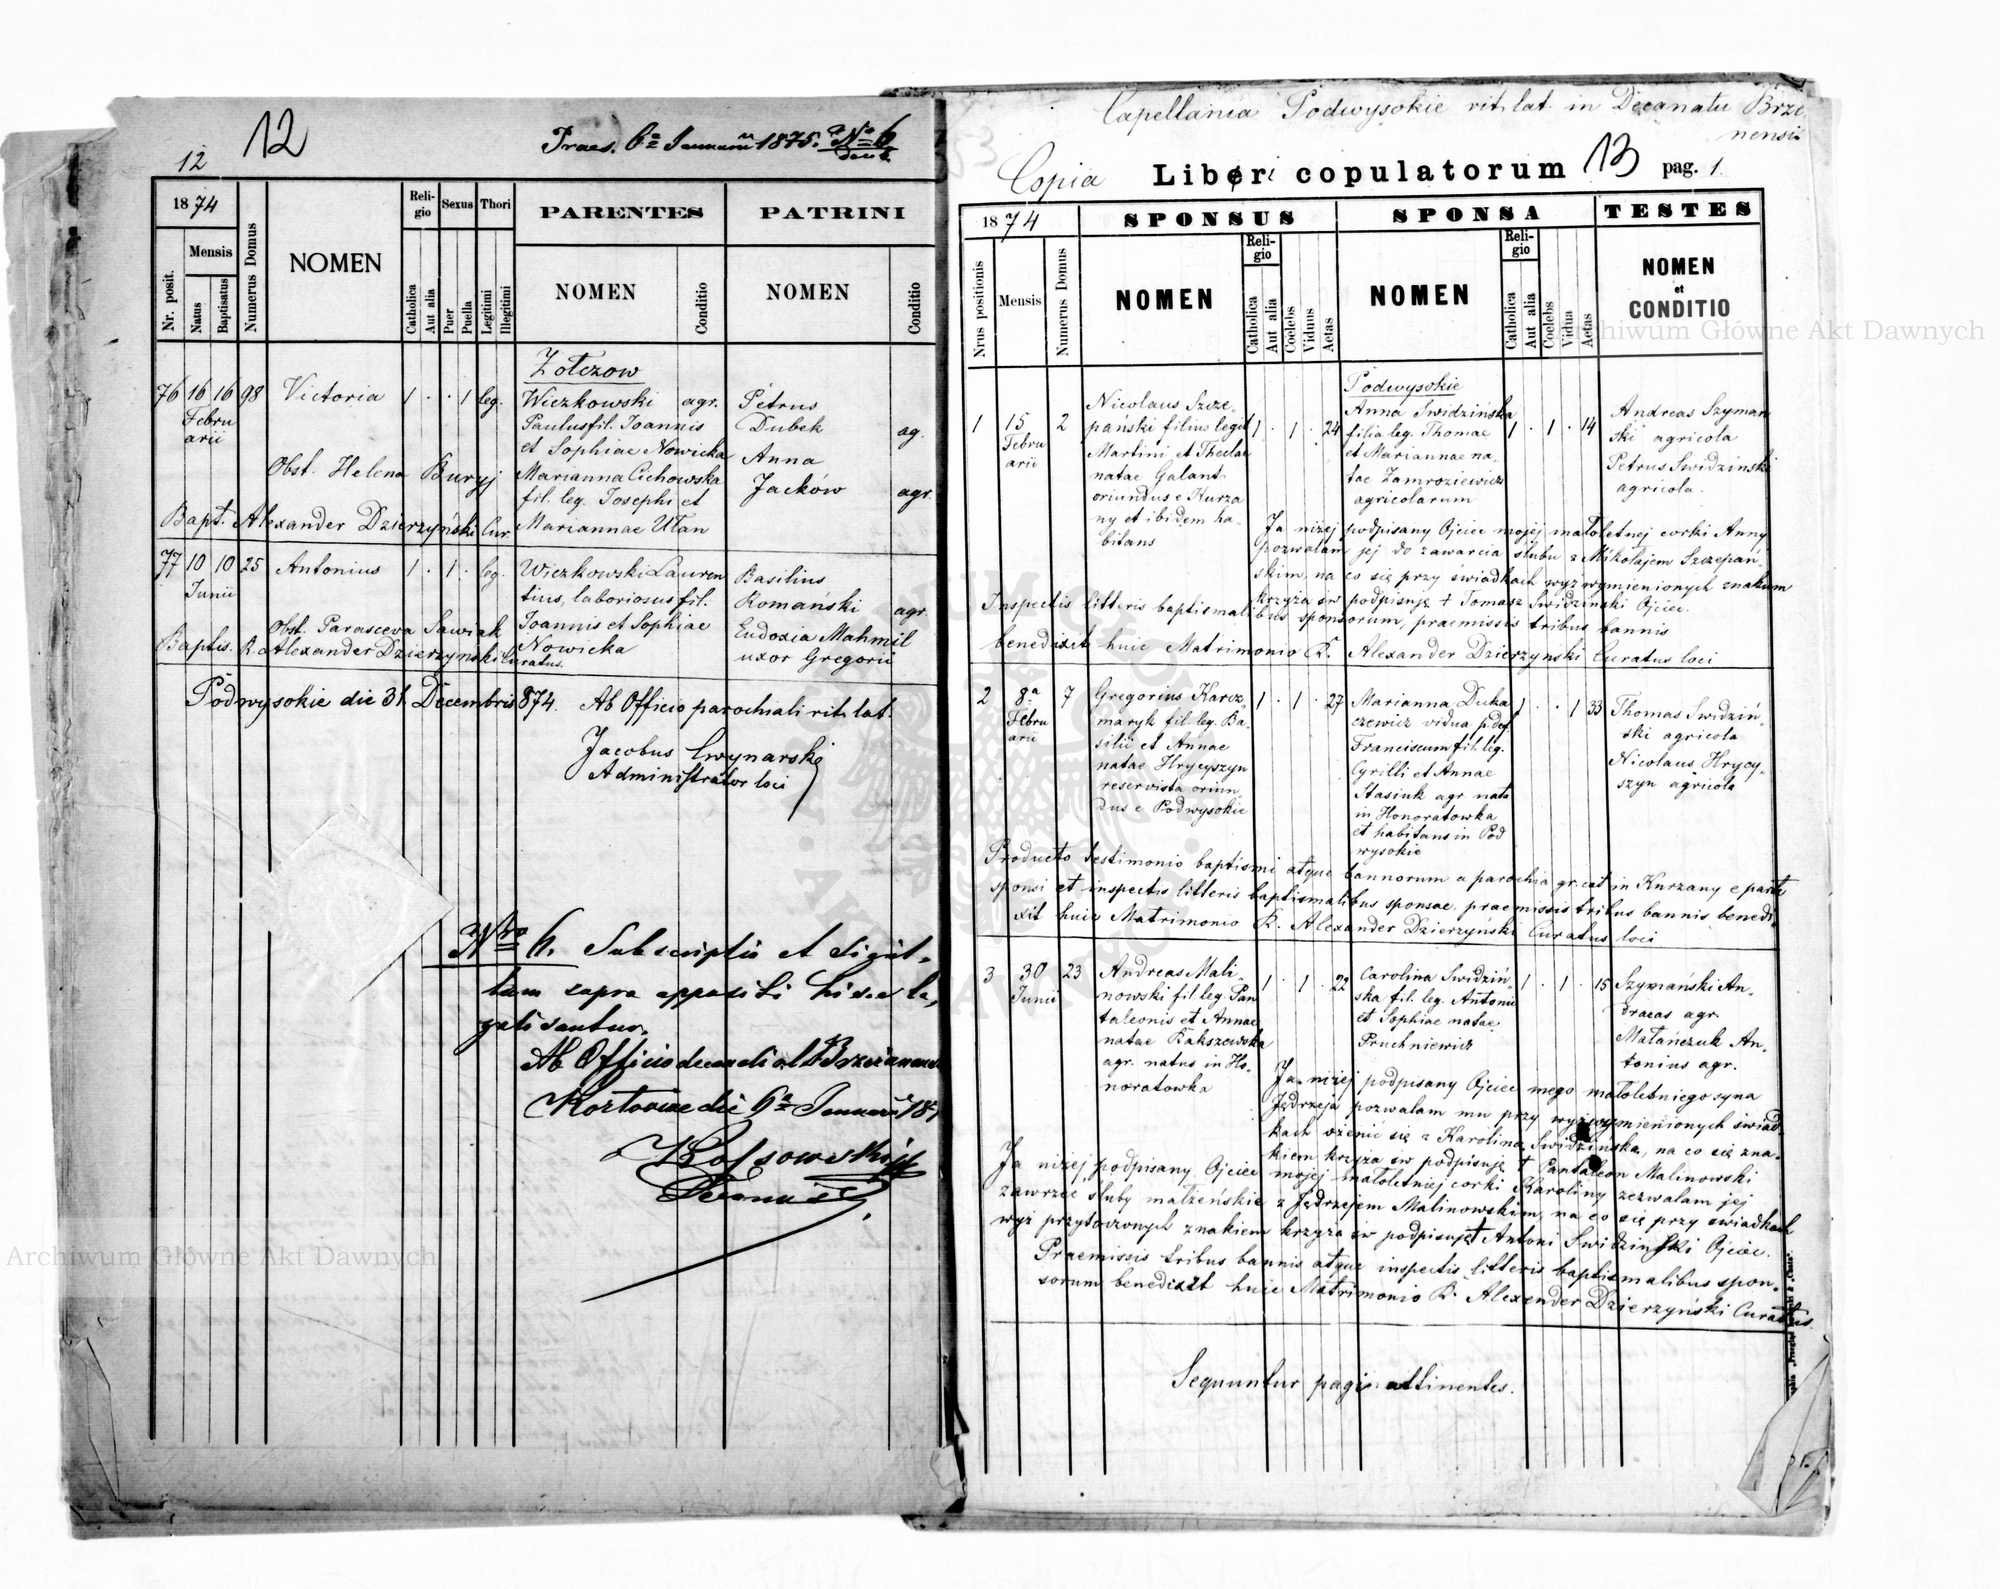 12
12
Praes. 6ª Januarii 1875. No 6
1874
Nr. posit.
Mensis
Natus
Baptisatus
Numerus Domus
NOMEN
Religio
Catholica
Aut alia
Sexus
Puer
Puella
Thori
Legitimi
Illegitimi
PARENTES
NOMEN
Conditio
PATRINI
NOMEN
Conditio
Zołczow
76 16 16 98 Victoria 1 . . 1 leg. Wiczkowski agr. Petrus
Februarii
Paulus fil. Joannis Dubek ag.
et Sophiae Nowicka Anna
Obst. Helena Buryj Marianna Cichowska
fil. leg. Josephi et Jacków agr.
Bapt. Alexander Dzierzyński Cur. Mariannae Ułan
77 10 10 25 Antonius 1 . 1 . leg. Wiczkowski Lauren Basilius
Junii
tius, laboriosus fil. Romański agr.
Obst. Parasceva Sawiak Joannis et Sophiae Eudoxia Mahmil
Baptis. R. Alexander Dzierzynski Curatus. Nowicka uxor Gregorii
Podwysokie die 31 Decembris 874. Ab Officio parochiali rit. lat.
Jacobus Cwynarski
Administrator loci
Nro 6. Subscriptio et Sigil-
lum supra appositi hisce le,
galisantur.
Ab Officio decanali
die 6ª Januarii 187
Decanus
Capellania Podwysokie rit. lat. in Decanatu Brze
nensi
Copia Liberi copulatorum 13 pag. 1.
1874
Nrus positionis
Mensis
Numerus Domus
SPONSUS
NOMEN
Religio
Catholica
Aut alia
Coelebs
Viduus
Aetas
SPONSA
NOMEN
Religio
Catholica
Aut alia
Coelebs
Vidua
Aetas
TESTES
NOMEN
et
CONDITIO
Podwysokie
1 15 Februarii 2
Nicolaus Szcze-
pański filius legit
Martini et Theclae
natae Galant
oriundus e Kurza
ny et ibidem ha-
bitans
1 . 1 . 24
Anna Swidzińska
filia leg. Thomae
et Mariannae na-
tae Zamroziewicz
agricolarum
1 . 1 . 14
Andreas Szymań
ski agricola
Petrus Swidzinski
agricola.
Ja niżej podpisany Ojciec mojej małoletnej corki Anny
pozwalam jej do zawarcia ślubu z Mikołajem Szczepań
skim, na co się przy świadkach wyż wymienionych znakiem
krzyża św podpisuję + Tomasz Swidzinski Ojciec.
Inspectis litteris baptismalibus sponsorum, praemissis tribus bannis
benedixit huic Matrimonio R. Alexander Dzierzyński Curatus loci
2 8ª Februarii 7
Gregorius Karcz
maryk fil. leg. Ba-
silii et Annae
natae Hrycyszyn
reservista oriun-
dus e Podwysokie
1 . 1 . 27
Marianna Duka
czewicz vidua p. def
Franciscum fil. leg.
Cyrilli et Annae
Stasiuk agr. nata
in Honoratowka
et habitans in Pod
wysokie
1 . . 1 33
Thomas Swidziń-
ski agricola
Nicolaus Hrycy-
szyn agricola
Producto testimonio baptismi atque bannorum a parochia gr. cat in Kurzany e parte
sponsi et inspectis litteris baptismalibus sponsae, praemissis tribus bannis benedi
xit huic Matrimonio R. Alexander Dzierzyński Curatus loci
3 30 Junii 23
Andreas Mali-
nowski fil leg. Pan
taleonis et Annae
natae Bakszewska
agr. natus in Ho-
noratowka
1 . 1 . 22
Carolina Swidziń
ska fil. leg. Antonii
et Sophiae natae
Pruchniewicz
1 . 1 . 15
Szymański An-
dreas agr.
Matańczuk An-
tonius agr.
Ja niżej podpisany Ojciec mego małoletniego syna
Jędrzeja pozwalam mu przy wyż wymienionych świad-
kach ożenić się z Karoliną Swidzińską, na co się zna-
kiem krzyża św podpisuję + Pantaleon Malinowski
Ja niżej podpisany Ojciec mojej małoletniej corki Karoliny zezwalam jej
zawrzec śluby małżeńskie z Jędrzejem Malinowskim, na co się przy świadkach
wyż przytoczonych znakiem krzyża św podpisuję + Antoni Swidziński Ojciec.
Praemissis tribus bannis atque inspectis litteris baptismalibus spon-
sorum benedixit huic Matrimonio R. Alexander Dzierzyński Curatus.
Sequuntur pagi attinentes.
Archiwum Główne Akt Dawnych
Archiwum Główne Akt Dawnych